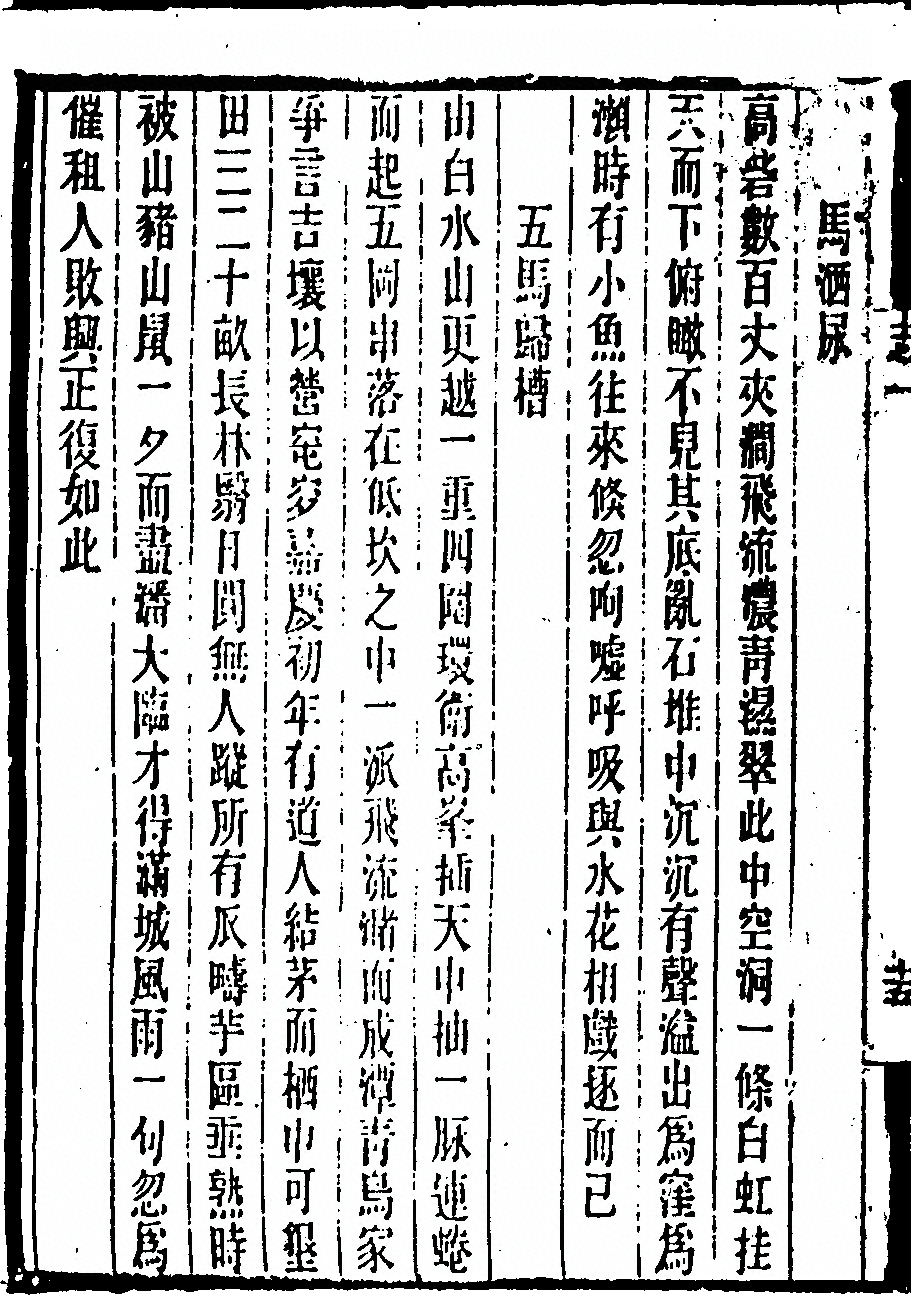 馬洒尿
高砦數百丈夾澗飛流濃青濕翠此中空洞一條白虹挂
天而下俯瞰不見其底亂石堆中沉沉有聲溢出爲窪爲
瀨時有小魚往來倏忽呴噓呼吸與水花相戲逐而已
五馬歸槽
由白水山更越一重四圍環衛高峯插天中抽一脉連蜷
而起五岡串落在低坎之中一派飛流瀦而成潭青烏家
爭言吉壤以營窀穸嘉慶初年有道人結茅而栖中可墾
田三二十畝長林翳日闃無人蹤所有瓜疇芋區垂熟時
被山豬山鼠一夕而盡潘大臨才得滿城風雨一句忽爲
催租人敗興正復如此
志一
十五